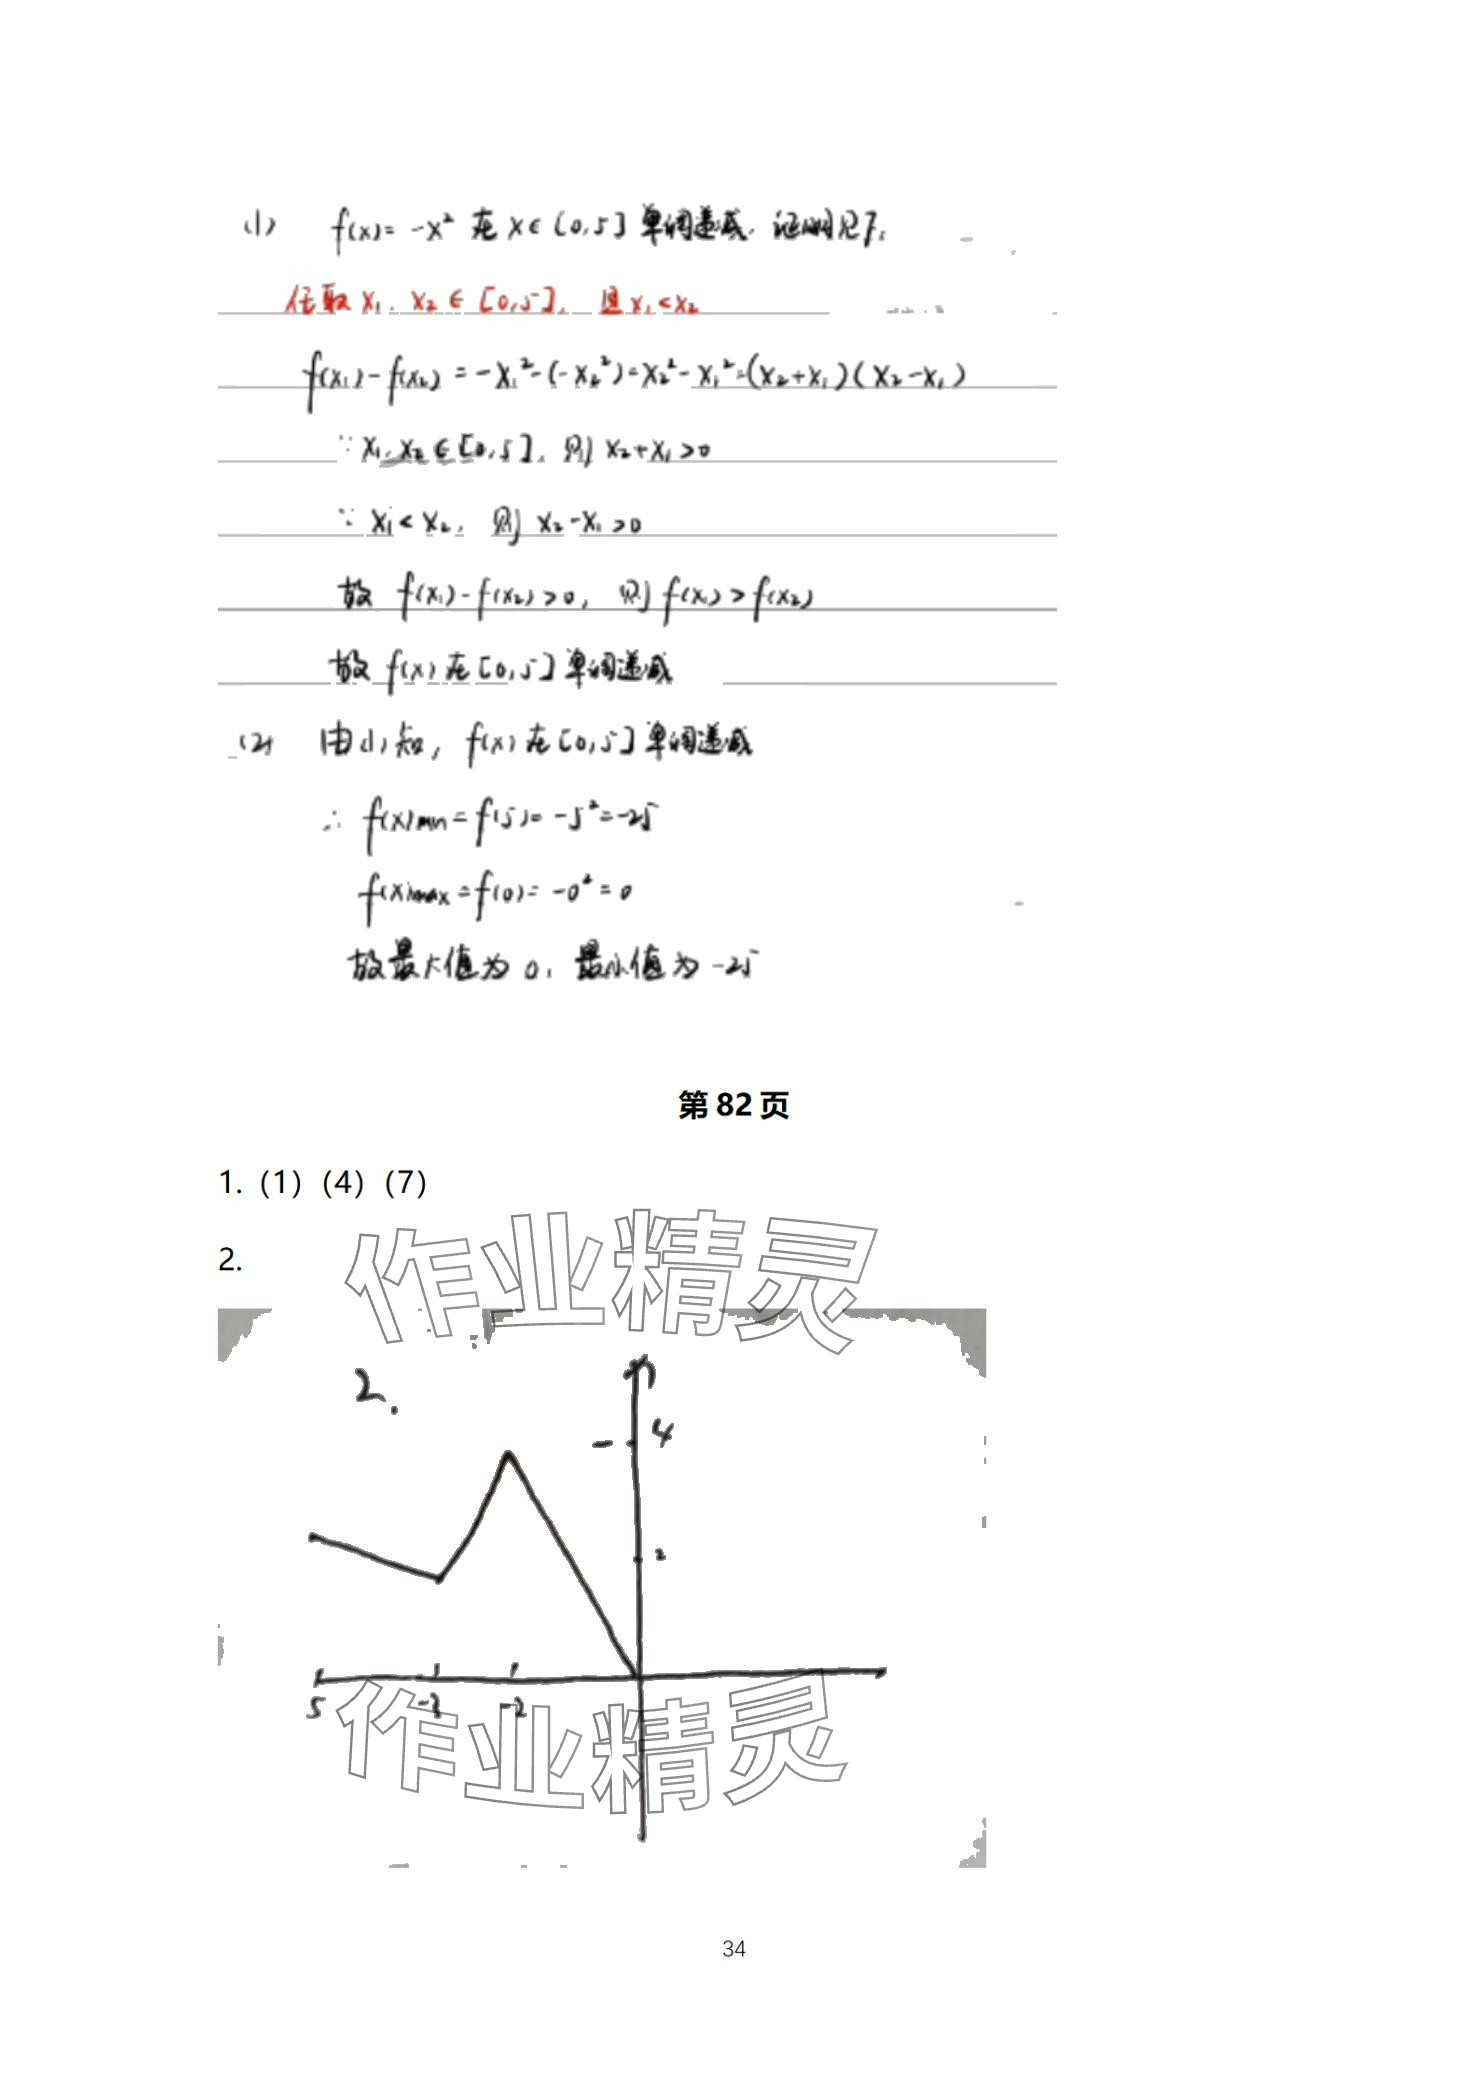 (1) f(x)=-x² 在 x∈[0,5] 单调递减, 证明见下:
任取 x₁, x₂∈[0,5], 且 x₁<x₂
f(x₁)-f(x₂)=-x₁²-(-x₂²)=x₂²-x₁²=(x₂+x₁)(x₂-x₁)
∵ x₁, x₂∈[0,5], 则 x₂+x₁>0
∵ x₁<x₂, 则 x₂-x₁>0
故 f(x₁)-f(x₂)>0, 则 f(x₁)>f(x₂)
故 f(x) 在[0,5]单调递减
(2) 由(1)知, f(x) 在[0,5]单调递减
∴ f(x)min=f(5)=-5²=-25
f(x)max=f(0)=-0²=0
故最大值为 0, 最小值为 -25
第 82 页
1. (1) (4) (7)
2.
作业精灵
2.
4
2
5 -3 -2
作业精灵
34